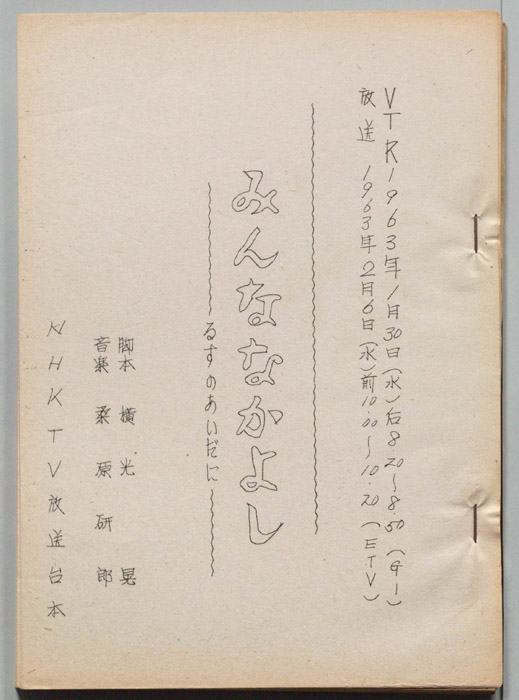 VTR1963年1月30日(水)后8.20〜8.50(G1)
放送 1963年2月6日(水)前10.00〜10.20(ETV)
みんななかよし
〜るすのあいだに〜
脚本 横光 晃
音楽 桑原研郎
NHKTV放送台本